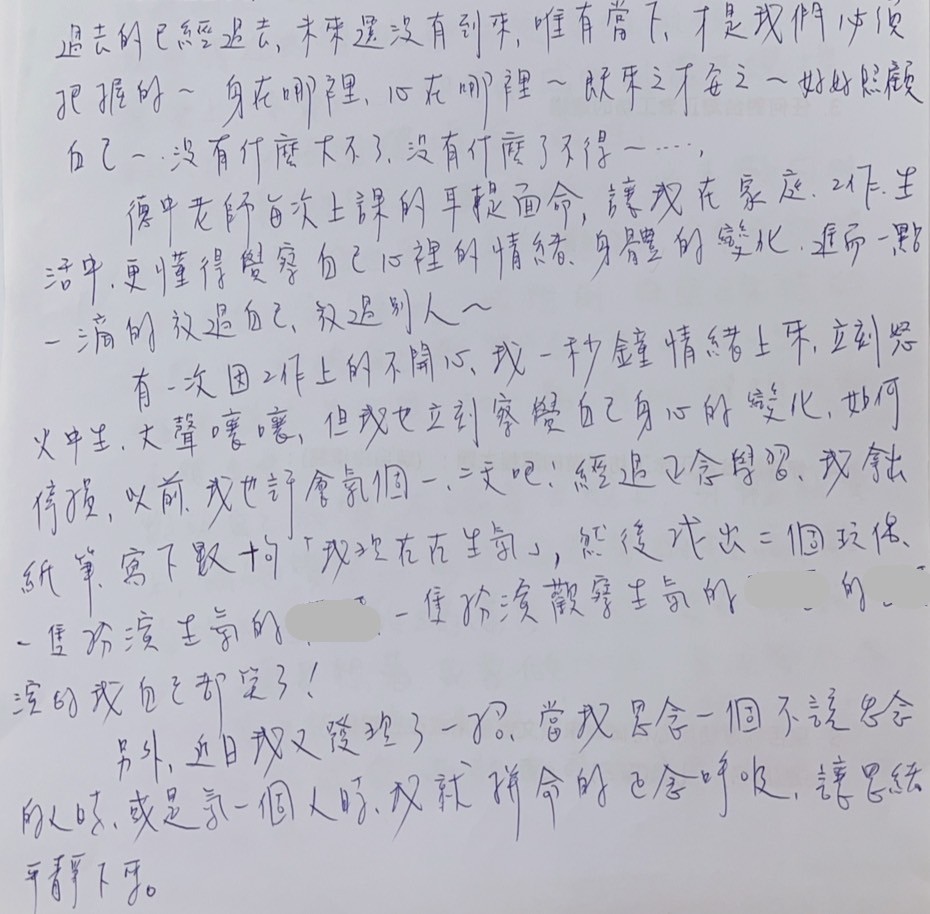 過去的已經過去，未來還沒有到來，唯有當下，才是我們必須
把握的～身在哪裡、心在哪裡～既來之才安之～好好照顧
自己～‥沒有什麼大不了、沒有什麼了不得～‥‥，
德中老師每次上課的耳提面命，讓我在家庭、工作、生
活中，更懂得覺察自己心裡的情緒、身體的變化，進而一點
一滴的放過自己、放過別人～
有一次因工作上的不開心、我一秒鐘情緒上來，立刻怒
火中生，大聲嚷嚷，但我也立刻察覺自己身心的變化，如何
停損，以前，我也許會氣個一、二天吧；經過正念學習，我拿出
紙筆，寫下數十句「我現在在生氣」，然後找出二個玩偶、
一隻扮演生氣的 一隻扮演觀察生氣的 的
演的我自己都笑了！
另外，近日我又發現了一招，當我思念一個不該思念
的人時、或是氣一個人時，我就拼命的正念呼吸，讓思緒
平靜下來。